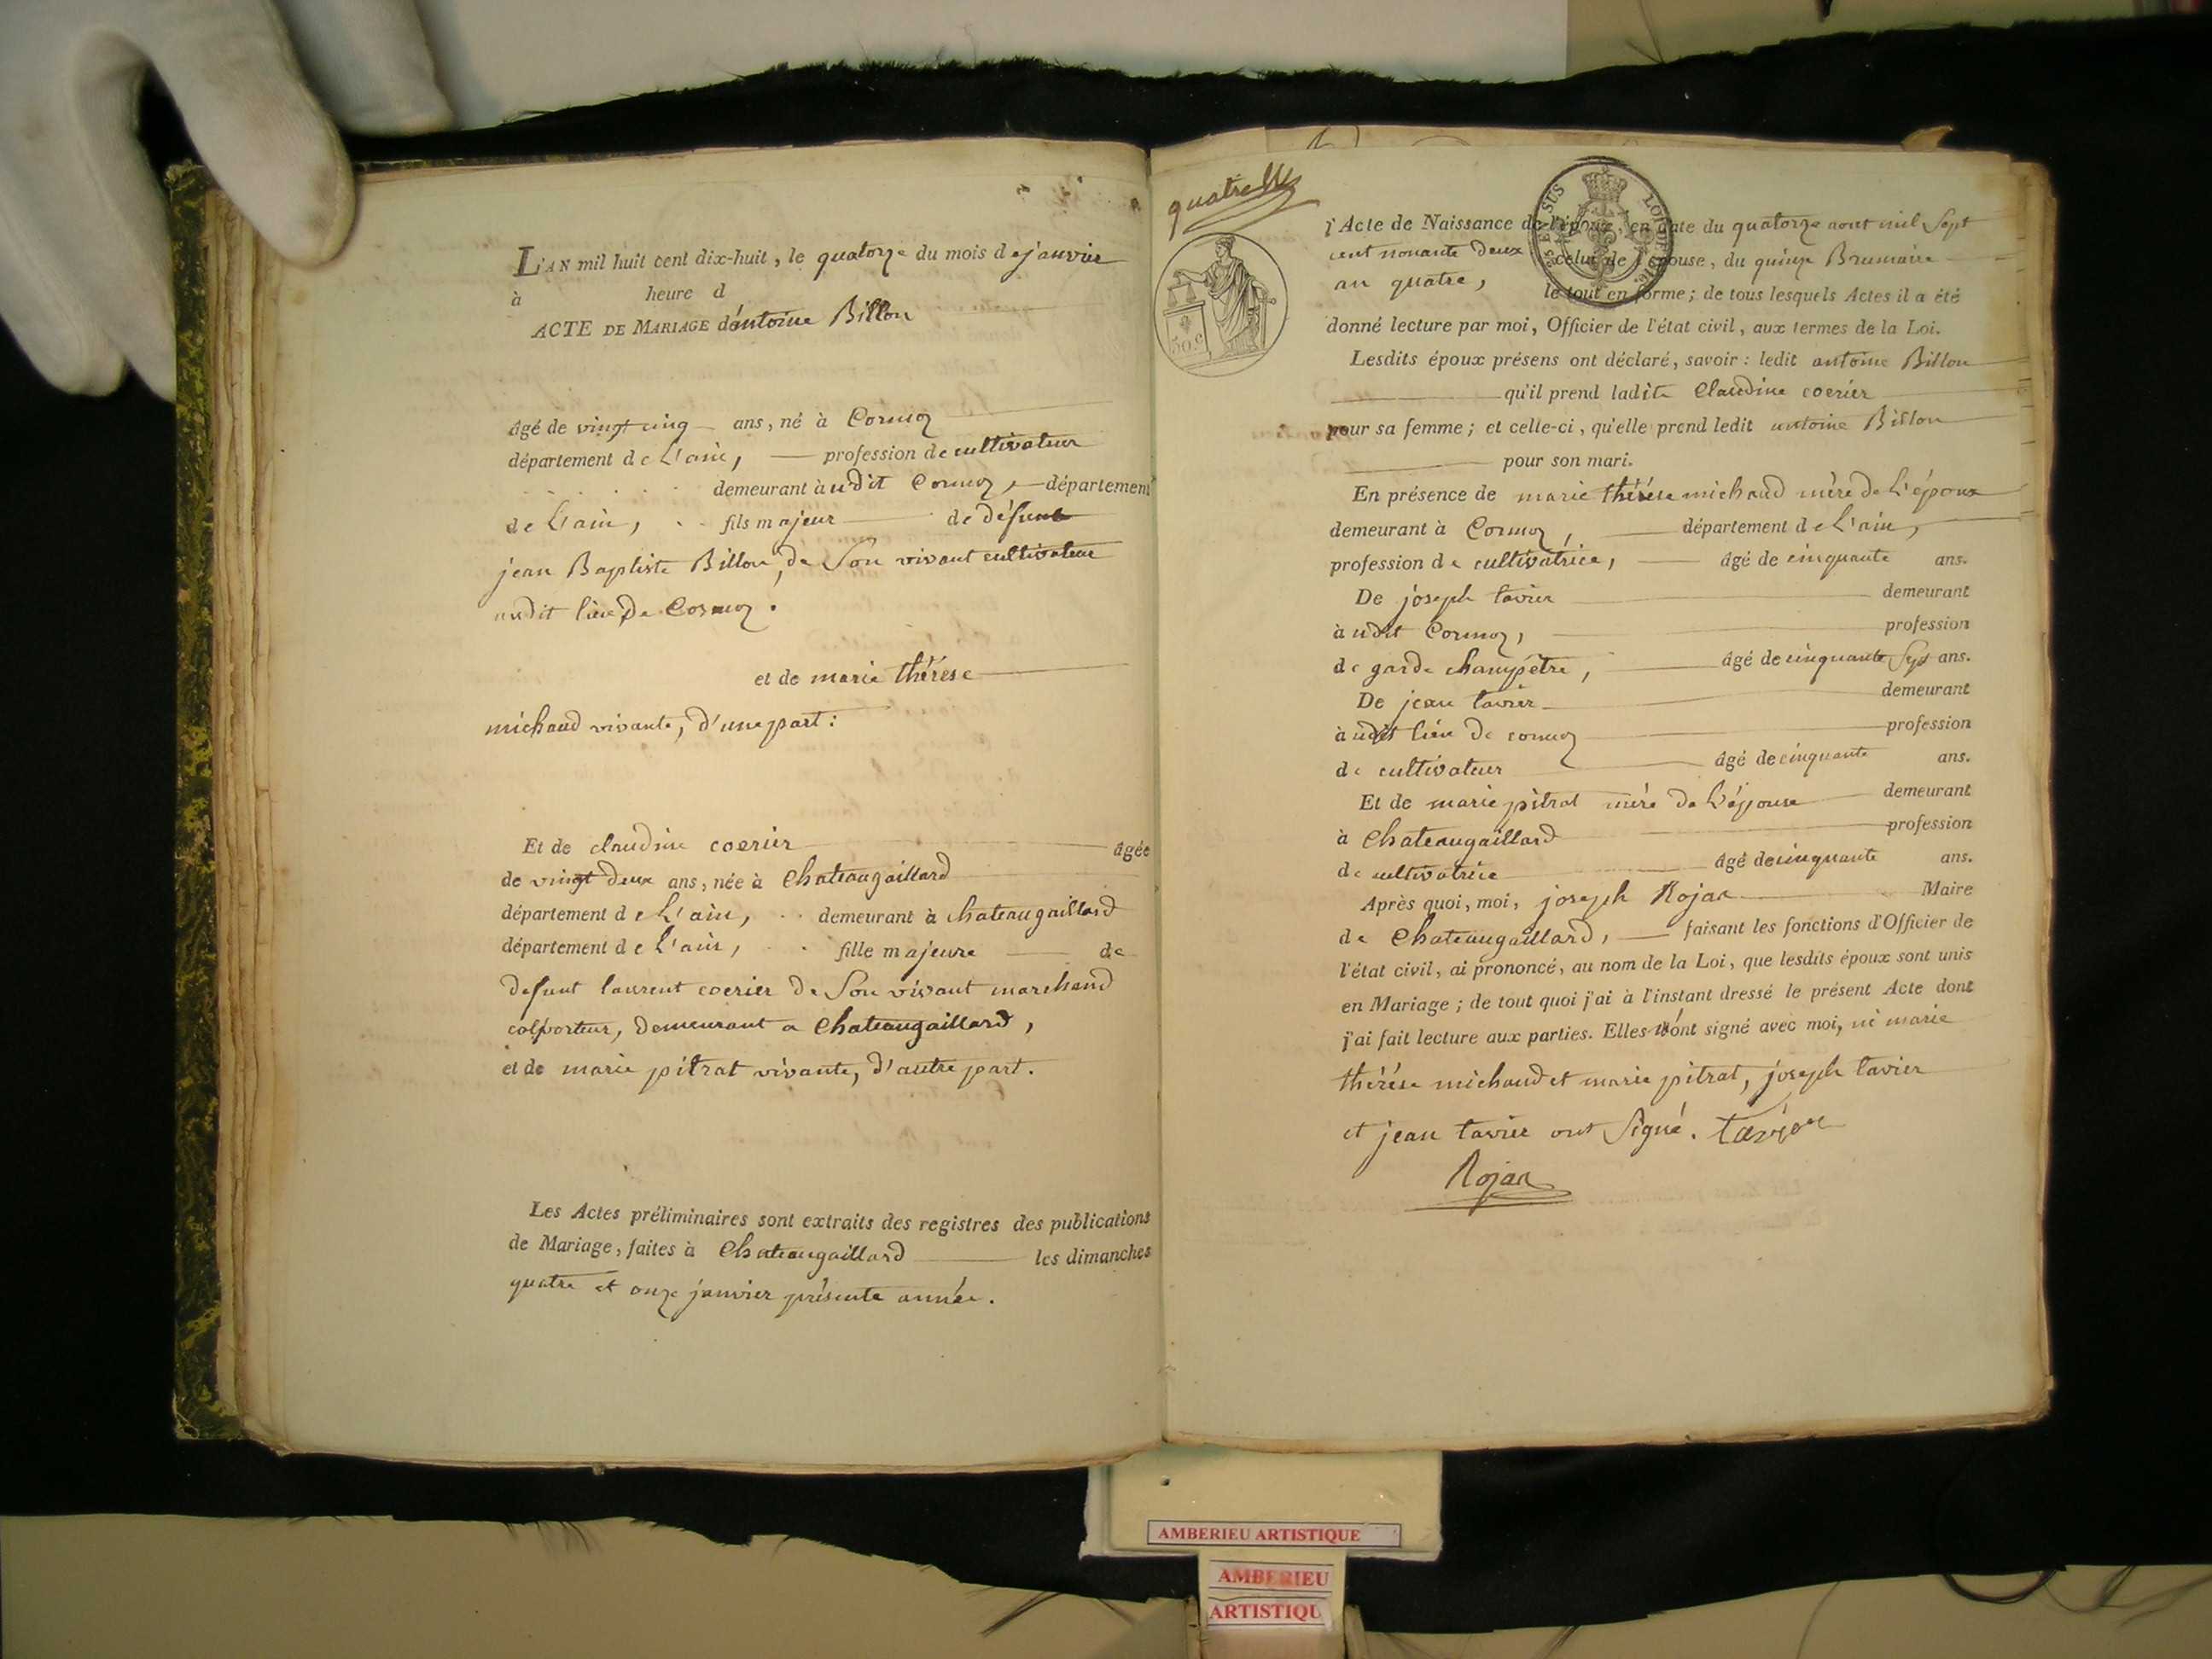 L'AN mil huit cent dix-huit, le quatorze du mois de janvier
à heure d
ACTE DE MARIAGE d'antoine Billon
âgé de vingt cinq ans, né à Cormoz
département de L'ain, profession de cultivateur
demeurant audit Cormoz, département
de L'ain, fils majeur de défunt
jean Baptiste Billon, de Son vivant cultivateur
audit lieu de Cormoz.
et de marie thérése
michaud vivante, d'une part:
Et de claudine coerier âgée
de vingt deux ans, née à Chateaugaillard
département de L'ain, demeurant à chateaugaillard
département de L'ain, fille majeure de
defunt laurent coerier de Son vivant marchand
colporteur, demeurant a Chateaugaillard,
et de marie pitrat vivante, d'autre part.
Les Actes préliminaires sont extraits des registres des publications
de Mariage, faites à Chateaugaillard les dimanches
quatre et onze janvier présente année.
quatre
50 c
l'Acte de Naissance de l'époux, en date du quatorze aout mil Sept
cent nonante deux celui de l'épouse, du quinze Brumaire
an quatre, le tout en forme; de tous lesquels Actes il a été
donné lecture par moi, Officier de l'état civil, aux termes de la Loi.
Lesdits époux présens ont déclaré, savoir: ledit antoine Billon
qu'il prend ladite Claudine coerier
pour sa femme; et celle-ci, qu'elle prend ledit antoine Billon
pour son mari.
En présence de marie thérése michaud mére de L'époux
demeurant à Cormoz, département de L'ain,
profession de cultivatrice, âgé de cinquante ans.
De joseph tavier demeurant
audit Cormoz, profession
de garde champêtre, âgé de cinquante Sept ans.
De jean tavier demeurant
audit lieu de cormoz profession
de cultivateur âgé de cinquante ans.
Et de marie pitrat mére de L'épouse demeurant
à Chateaugaillard profession
de cultivatrice âgé de cinquante ans.
Après quoi, moi, joseph Rojat Maire
de Chateaugaillard, faisant les fonctions d'Officier de
l'état civil, ai prononcé, au nom de la Loi, que lesdits époux sont unis
en Mariage; de tout quoi j'ai à l'instant dressé le présent Acte dont
j'ai fait lecture aux parties. Elles n'ont signé avec moi, ni marie
thérése michaud et marie pitrat, joseph tavier
et jean tavier ont Signé. tavier
Rojat
AMBERIEU ARTISTIQUE
AMBERIEU
ARTISTIQU